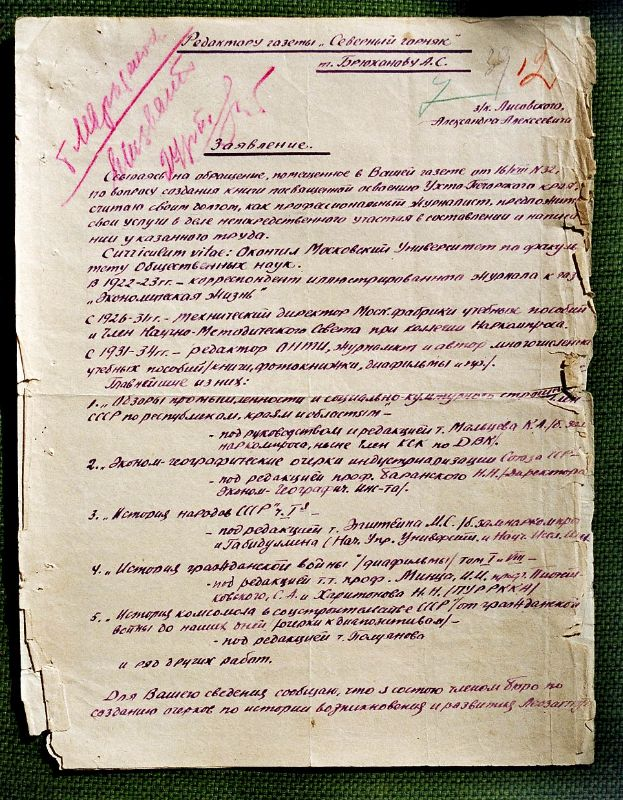 Редактору газеты „Северный горняк"
т. Брюханову А.С.
12
з/к. Лисовского,
Александра Алексеевича
Заявление.
Ссылаясь на обращение, помещенное в Вашей газете от 16/VIII N32,
по вопросу создания книги посвященной освоению Ухто-Печорского края,
считаю своим долгом, как профессиональный журналист, предложить
свои услуги в деле непосредственного участия в составлении и написа-
нии указанного труда.
Curriculum vitae: Окончил Московский Университет по факуль-
тету Общественных наук.
В 1922-23 г.г. – корреспондент иллюстрированного журнала к газ.
„Экономическая Жизнь"
С 1926-31 г.г. – технический директор Моск. фабрики учебных пособий
и член Научно-Методического Совета при коллегии Наркомпроса.
С 1931-34 г.г. – редактор ОНТИ, журналист и автор многочисленных
учебных пособий /книги, фотокнижки, диафильмы и пр./.
Главнейшие из них:
1. „Обзоры промышленности и социально-культурного строительства
СССР по республикам, краям и областям" –
– под руководством и редакцией т. Мальцева К.А. /б. зам.
наркомпроса, ныне член КСК по ДВК/.
2. „Эконом-географические очерки индустриализации Союза ССР" –
– под редакцией проф. Баранского Н.Н. /директора
Эконом-Географич. ин-та/.
3. „История народов СССР" ч. I-я
– под редакцией т. Эпштейна М.С. /б. зам. наркомпроса
и Габидуллина /Нач. Упр. Университ. и Науч. Иссл.
4. „История гражданской войны" /диафильмы/ том I и VIII –
– под редакцией т.т. проф. Минца, И.И. проф. Пионт-
ковского, С.А. и Харитонова Н.Н. /ПУРРККА/
5. „История комсомола в соцстроительстве СССР" /от гражданской
войны до наших дней /очерки к диапозитивам/ –
– под редакцией т. Полуянова
и ряд других работ.
Для Вашего сведения сообщаю, что я состою членом бюро по
созданию очерков по истории возникновения и развития